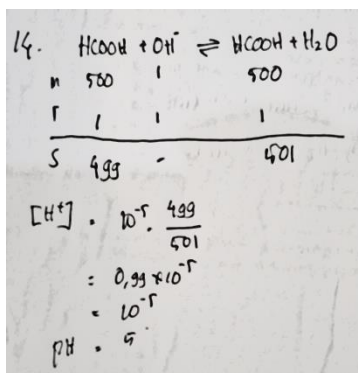 14. HCOOH + OH⁻ ⇌ HCOOH + H₂O
n 500 1 500
r 1 1 1
S 499 - 501
[H⁺] = 10⁻⁵ . 499/501
= 0,99 × 10⁻⁵
= 10⁻⁵
pH = 5